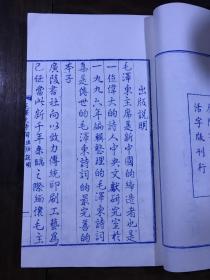 出版説明
毛澤東主席是新中國的締造者也是
一位偉大的詩人中央文獻研究室於
一九九六年編輯整理的毛澤東詩詞
集是傳世的毛澤東詩詞的最完善的
本子
廣陵書社向以致力傳統印刷工藝爲
己任當此新千年來臨之際緬懷毛主
活字版刊行